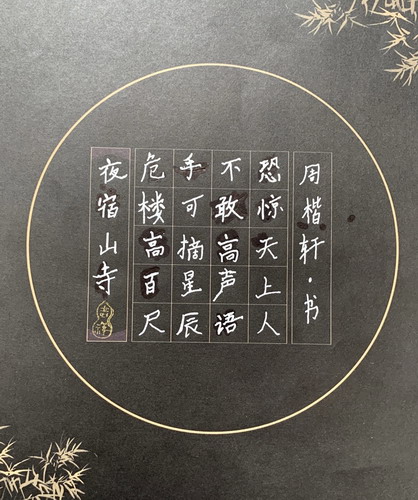 夜宿山寺
危楼高百尺
手可摘星辰
不敢高声语
恐惊天上人
周楷轩·书